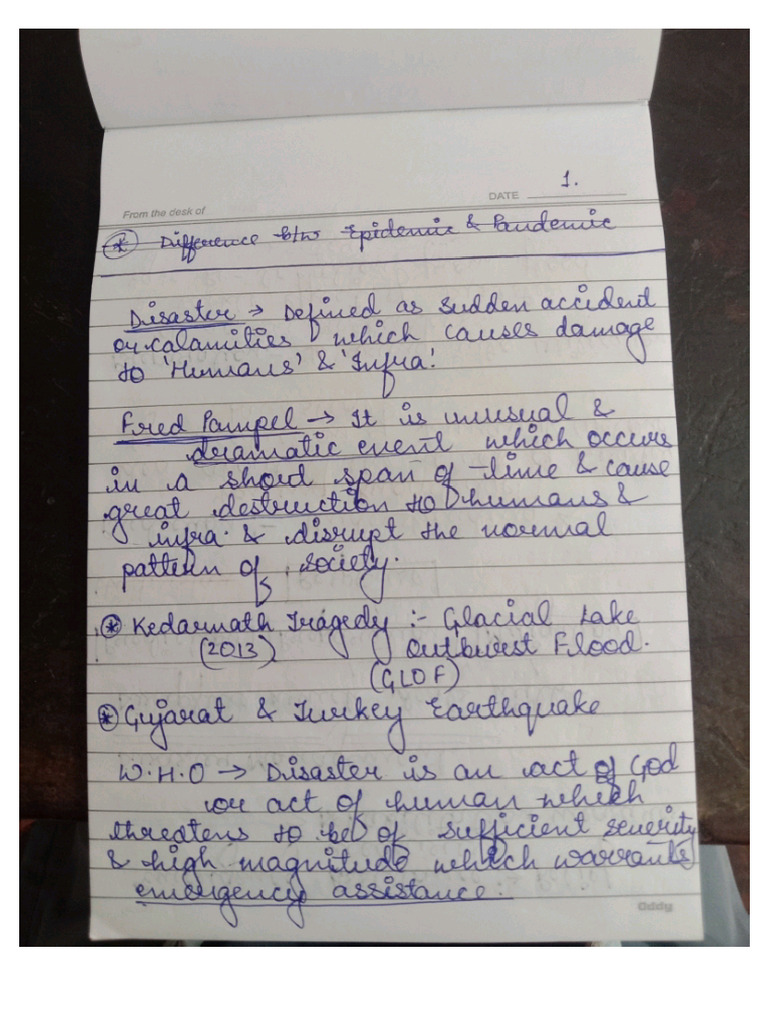 1.
From the desk of
DATE
* Difference b/w Epidemic & Pandemic
Disaster → Defined as sudden accident
or calamities which causes damage
to 'Humans' & 'Infra'.
Fred Pampel → It is unusual &
dramatic event which occurs
in a short span of time & cause
great destruction to humans &
infra. & disrupt the normal
pattern of society.
* Kedarnath Tragedy :- Glacial Lake
(2013) Outburst Flood.
(GLOF)
* Gujarat & Turkey Earthquake
W.H.O → Disaster is an act of God
or act of human which
threatens to be of sufficient severity
& high magnitude which warrants
emergency assistance.
Oddy